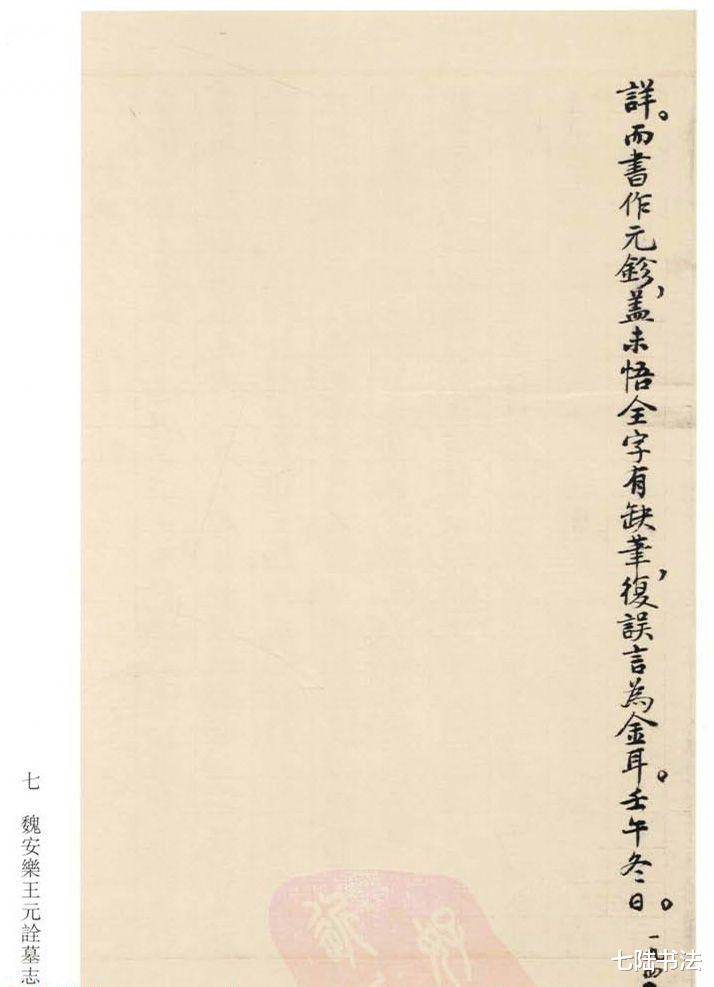 詳。而書作元鉁，盖未悟全字有缺筆，復誤言為金耳。壬午冬日。
七 魏安樂王元詮墓志
七陆书法